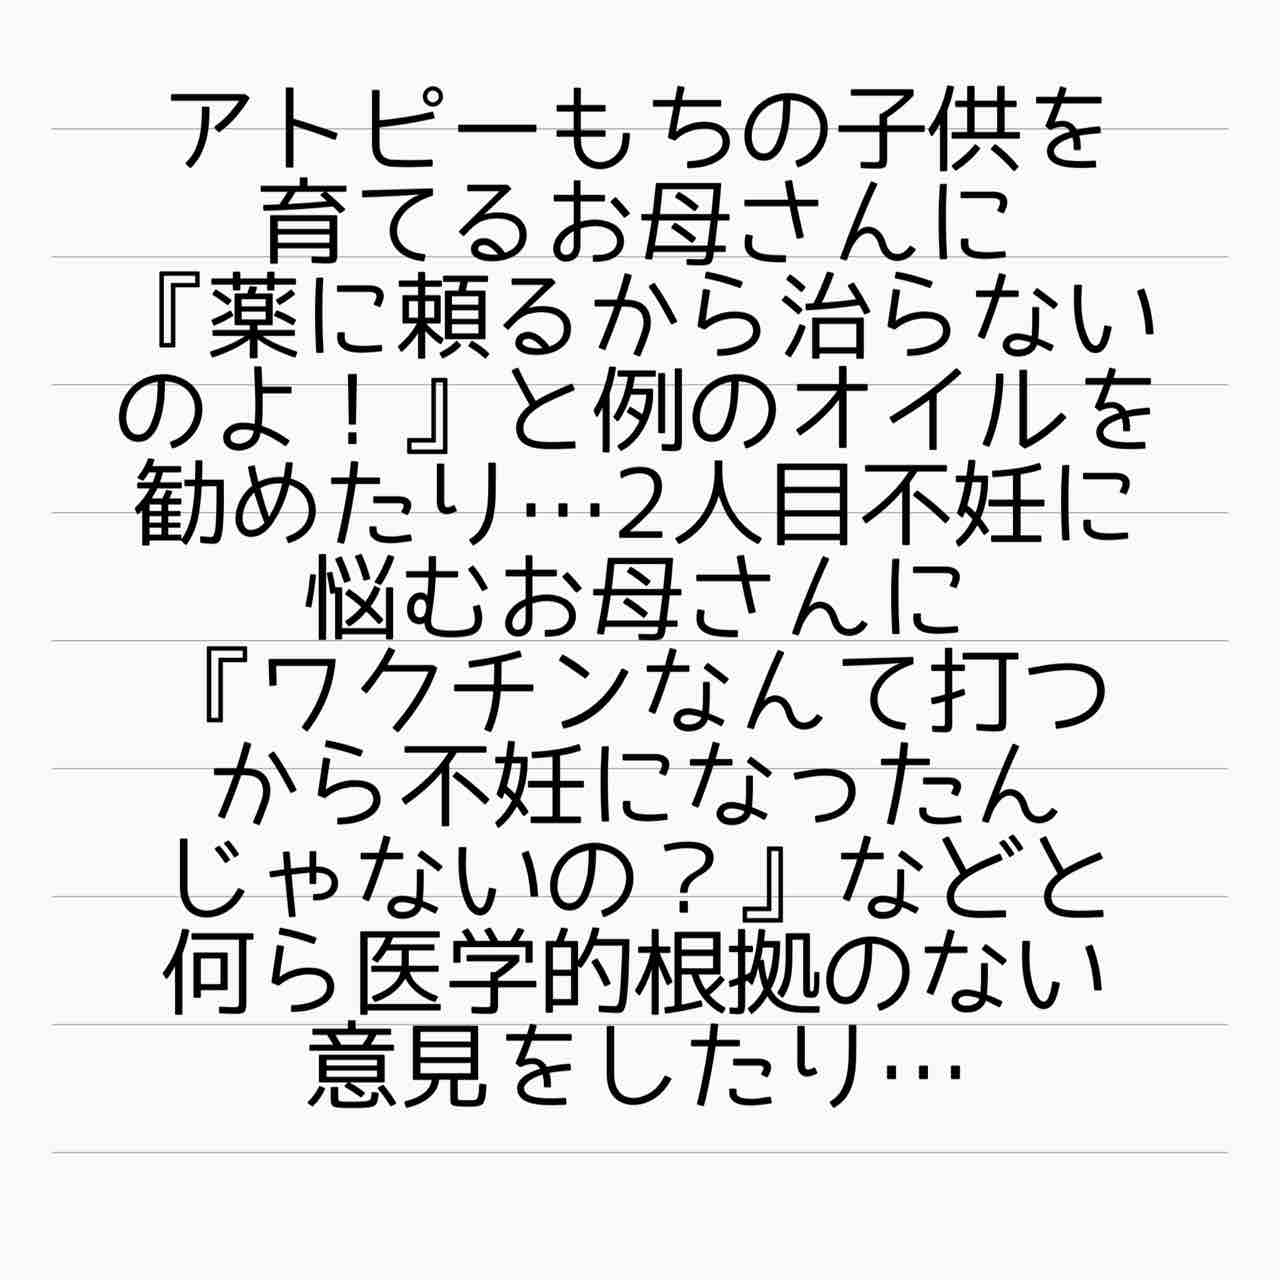 アトピーもちの子供を
育てるお母さんに
『薬に頼るから治らない
のよ！』と例のオイルを
勧めたり…2人目不妊に
悩むお母さんに
『ワクチンなんて打つ
から不妊になったん
じゃないの？』などと
何ら医学的根拠のない
意見をしたり…